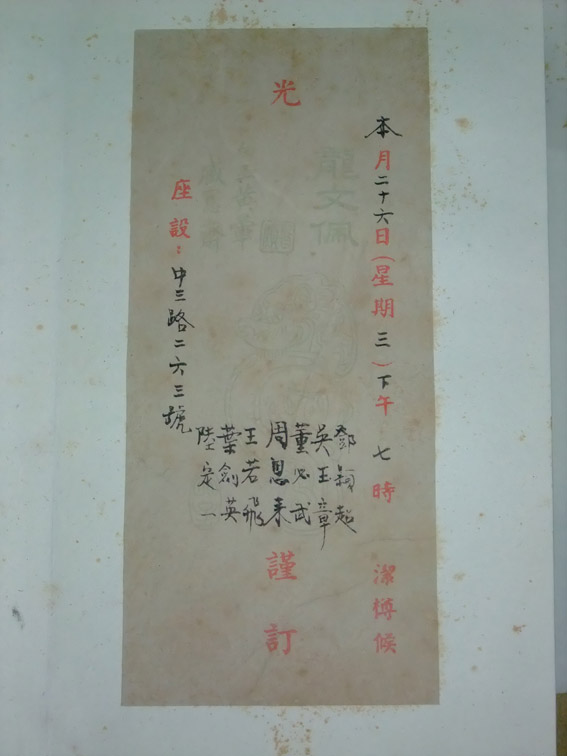 本月二十六日(星期三)下午七時 潔樽候
光
鄧穎超
吳玉章
董必武
周恩来
王若飛
葉劍英
陸定一
謹訂
座設:中三路二六三號